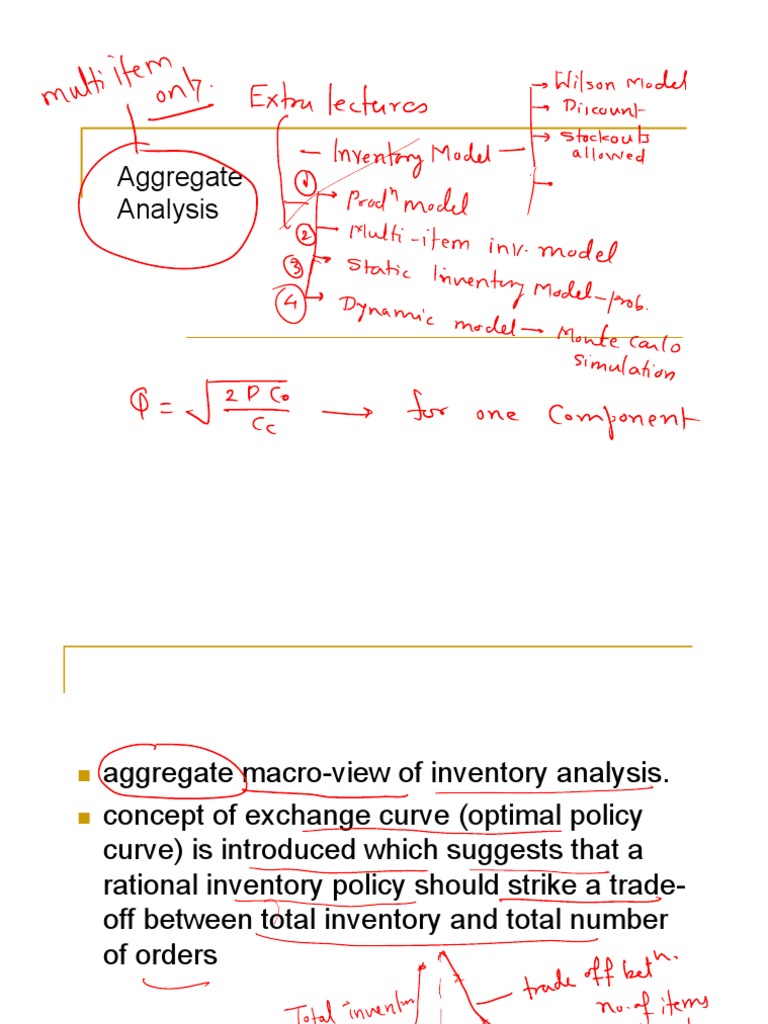 multi item
only.
Extra lectures
Aggregate
Analysis
— Inventory Model —
→ Wilson Model
→ Discount
→ Stockouts
allowed
→
① → Prodⁿ model
② → Multi-item inv. model
③ → Static Inventory Model – prob.
④ → Dynamic model → Monte Carlo
simulation
Q = √(2 D Co / Cc) → for one component
■ aggregate macro-view of inventory analysis.
■ concept of exchange curve (optimal policy
curve) is introduced which suggests that a
rational inventory policy should strike a trade-
off between total inventory and total number
of orders
trade off betⁿ.
no. of items
Total